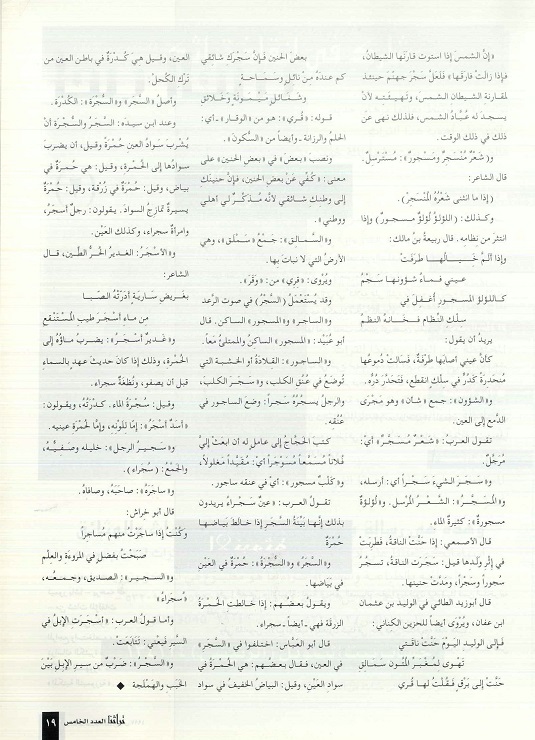 «إنَّ الشمسَ إذا استوت قارنَها الشيطانُ،
فإذا زالَتْ فارقَها» فلعَلَّ سَجْرَ جهنّمَ حينئذ
لمقارنة الشيطان الشمسَ، وتَهيئَتِه لأنْ
يسجدَ له عُبَّادُ الشمس، فلذلك نهى عن
ذلك في ذلك الوقت.
و«شَعْرٌ مُنْسَجِرٌ ومَسْجُورٌ»: مُسْتَرْسِلٌ.
قال الشاعر:
(إذا ما انثنى شَعْرُهُ المُنْسَجِرْ).
وكذلك: (اللؤلؤُ لُؤلؤٌ مسجورٌ) إذا
انتثرَ من نظامه. قال ربيعةُ بنُ مالك:
وإذا ألَمَّ خَيالُها طَرفَتْ
عيني فماءُ شؤونها سَجْمُ
كاللؤلؤِ المسجور أغفلَ في
سلْكِ النِّظام فخانهُ النظمُ
يريدُ أن يقول:
كأنَّ عيني أصابَها طَرْفةٌ، فَسالَتْ دُموعُها
مُنحَدرَةً كَدُرٍّ في سلْكٍ انقطع، فتَحَدَّرَ دُرُّه.
و«الشؤون»: جمع «شأن» وهو مَجْرى
الدَّمع إلى العين.
تقول العربُ: «شَعْرٌ مُسَجَّرٌ» أيْ:
مرجَّلٌ.
و«سَجَرَ الشيءَ سَجْراً أي: أرسله،
و«المُسَجَّرُ»: الشَّعْرُ المُرسَل. و«لُؤلؤةٌ
مسجورةٌ»: كثيرةُ الماء.
قال الأصمعي: إذا حَنَّتْ الناقةُ، فطرِبَتْ
في إثْرِ ولَدها قيل: سَجَرت الناقةُ، تسْجُرُ
سُجوراً وسَجْراً، ومَدَّتْ حنينها.
قال أبوزيد الطائي في الوليد بن عثمان
ابن عفان، ويُرْوَى أيضاً للحزين الكناني:
فإلى الوليدِ اليَوْمَ حَنَّتْ ناقتي
تَهْوى لمُغْبَرِّ المُتُون سَمَالق
حَنَّتْ إلى بَرْقٍ فقُلْتُ لها قُري
بعضَ الحنين فإنَّ سَجْرَك شائقي
كم عندَهُ مِنْ نائلٍ وسَمَاحة
وشَمائلٍ مَيْمُونَةٍ وخَلائق
قوله: «قُري»: هو من «الوقار» ـ أي:
الحلم والرزانة ـ وأيضاً من «السكون».
ونصب «بعض» في «بعض الحنين» على
معنى: «كُفِّي عَنْ بعض الحنين، فإنَّ حنينَك
إلى وطنكِ شائقي لأنَّه مُذَكِّرٌ لي أهلي
ووطني».
و«السَّمالق»: جَمْعُ «سَمْلَق»، وهي
الأرضُ التي لا نباتَ بِها.
ويُرْوَى: «قِري» من: «وَقَرَ».
وقد يُسْتَعْمَلُ (السَّجْرُ) في صوت الرَّعد
و«الساجر» و«المسجور» الساكن. قال
أبو عُبَيْد: «المسجور» الساكنُ والممتلئُ مَعاً.
و«الساجور»: القلادةُ أو الخشبةُ التي
تُوضَعُ في عُنُق الكلب، و«سَجَرَ الكلبَ،
والرجلُ يسجُرُه سَجْراً: وضعَ الساجور في
عُنُقه.
كتبَ الحَجَّاجُ إلى عاملٍ له أن ابعَثْ إليَّ
فُلاناً مُسَمَّعاً مُسَوْجَراً أيْ: مُقيَّداً مَغلولاً،
و«كَلْبٌ مسجور»: أيْ في عنقه ساجور.
تقولُ العرب: «عينٌ سَجْراءُ يريدون
بذلك إنَّها بَيِّنَةُ السَّجَر إذا خالطَ بَياضَها
حُمْرَةٌ
و«السَّجَرُ» و«السُّجْرَةُ»: حُمْرَةٌ في العَيْنِ
في بَيَاضها.
ويقولُ بعضُهم: إذا خالطت الحُمْرَةُ
الزرقةَ فهي ـ أيضاً ـ سجراء.
قال أبو العَبَّاس: اختلفوا في «السَّجَر»
في العين، فقال بعضُهم: هي الحُمْرةُ في
سوادِ العَيْنِ، وقيل: البياضُ الخفيفُ في سواد
العين، وقيلَ هيَ كُدْرَةٌ في باطن العين من
تَرْك الكُحلْ.
وأصلُ «السَّجَر» و«السُّجْرَة»: الكُدْرَة.
وعند ابن سيده: السَّجَرُ والسُّجْرَةُ أنْ
يُشْرَب سَوَادُ العين حُمْرَةً وقيل، أن يضربَ
سوادُها إلى الحُمْرة، وقيل: هي حُمرةٌ في
بياض، وقيل: حُمْرَةٌ في زُرْقة، وقيل: حُمْرَةٌ
يسيرةٌ تمازجُ السوادَ. يقولون: رجلٌ أسجَرُ،
وامرأةٌ سجراء، وكذلك العَيْن.
و«الأسْجَرُ: الغديرُ الحُرُّ الطِّين، قال
الشاعر:
بغَريضِ ساريَةٍ أدَرَّتْهُ الصَّبا
من ماءِ أسْجَرَ طيبِ المُسْتَنْقَعِ
و«غديرٌ أسْجَرُ»: يضربُ ماؤُه إلى
الحُمرة، وذلك إذا كانَ حديثَ عهدٍ بالسماء
قبل أن يصفو، ونُطْفَةٌ سجراء.
وقيل: سُجْرَةُ الماء. كدْرَتُه، ويقولون:
«أسَدٌ أسْجَرُ»: إمَّا للونه، وإمَّا لحُمرةِ عينيه.
و«سَجيرُ الرجل»: خليله وصَفيُّه،
والجَمْعُ: (سُجَراء).
و«ساجَرَه»: صاحبَهُ، وصافاهُ.
قال أبو خراش:
وكُنْتُ إذا ساجَرْتُ منهم مُساجراً.
صَبَحْتُ بفضلٍ في المروءة والعِلْمِ
و«السجير»: الصديق، وجمعُه،
«سُجراءُ»
وأما قولُ العرب: «انْسَجَرت الإبلُ في
السَّير فيَعْني: تَتَابَعَتْ.
و«السَّجْرُ»: ضرْبٌ من سيرِ الإبلِ بَيْنَ
الخَبَب والهَمْلَجة ◆
تراثنا العدد الخامس ١٩